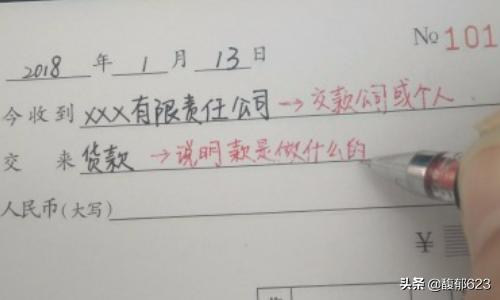 No 101
2018 年 1 月 13 日
今收到 XXX有限责任公司 → 交款公司或个人
交 来 货款 → 说明款是做什么的
人民币(大写)
¥
头条 @馥郁623